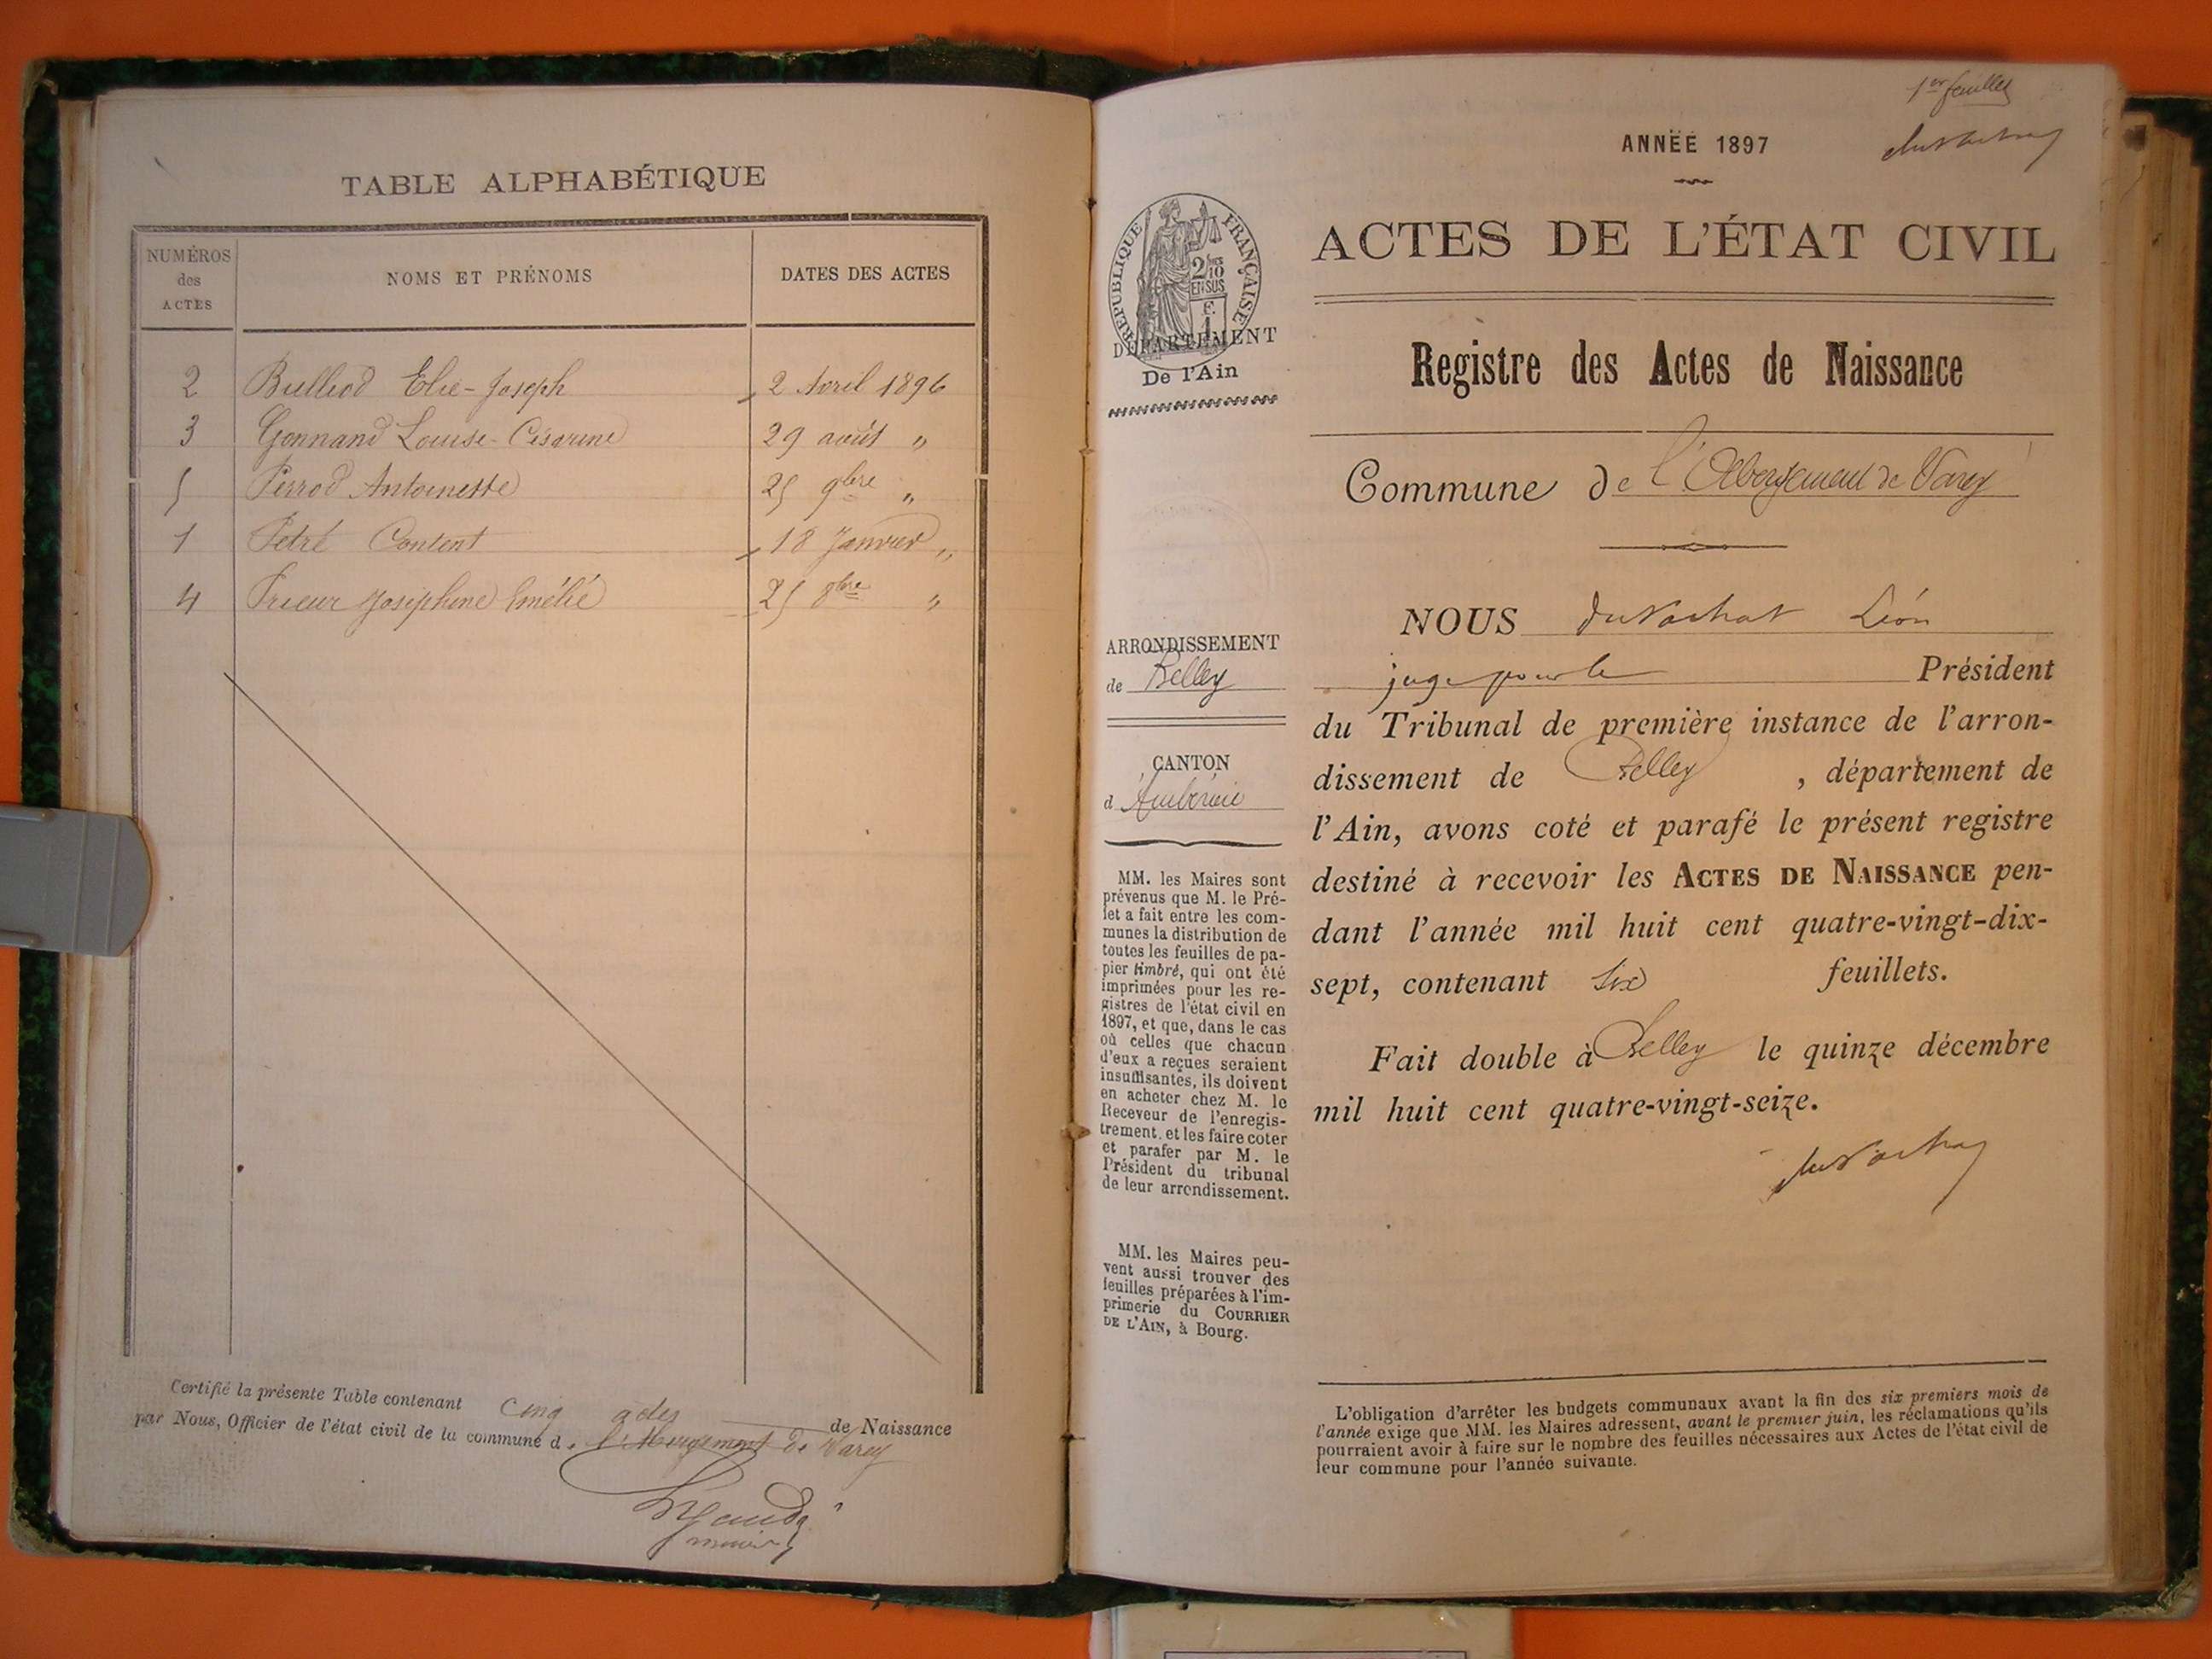 TABLE ALPHABÉTIQUE
NUMÉROS
des
ACTES
NOMS ET PRÉNOMS
DATES DES ACTES
2 Bulliod Elie-Joseph 2 Avril 1896
3 Gonnand Louise-Césarine 29 août "
5 Perrod Antoinette 25 9bre "
1 Petré Content 18 Janvier "
4 Prieur Joséphine Emélié 25 8bre "
Certifié la présente Table contenant cinq actes de Naissance
par Nous, Officier de l'état civil de la commune d e l'Abergement de Varey
maire
1er feuillet
ANNÉE 1897
ACTES DE L'ÉTAT CIVIL
Registre des Actes de Naissance
Commune de l'Abergement de Varey
RÉPUBLIQUE FRANÇAISE
2/10
EN SUS
F.
1
DÉPARTEMENT
De l'Ain
ARRONDISSEMENT
de Belley
CANTON
d'Ambérieu
MM. les Maires sont
prévenus que M. le Pré-
fet a fait entre les com-
munes la distribution de
toutes les feuilles de pa-
pier timbré, qui ont été
imprimées pour les re-
gistres de l'état civil en
1897, et que, dans le cas
où celles que chacun
d'eux a reçues seraient
insuffisantes, ils doivent
en acheter chez M. le
Receveur de l'enregis-
trement, et les faire coter
et parafer par M. le
Président du tribunal
de leur arrondissement.
MM. les Maires peu-
vent aussi trouver des
feuilles préparées à l'im-
primerie du COURRIER
DE L'AIN, à Bourg.
NOUS duVachat Léon
juge pour le Président
du Tribunal de première instance de l'arron-
dissement de Belley , département de
l'Ain, avons coté et parafé le présent registre
destiné à recevoir les ACTES DE NAISSANCE pen-
dant l'année mil huit cent quatre-vingt-dix-
sept, contenant six feuillets.
Fait double à Belley le quinze décembre
mil huit cent quatre-vingt-seize.
duVachat
L'obligation d'arrêter les budgets communaux avant la fin des six premiers mois de
l'année exige que MM. les Maires adressent, avant le premier juin, les réclamations qu'ils
pourraient avoir à faire sur le nombre des feuilles nécessaires aux Actes de l'état civil de
leur commune pour l'année suivante.